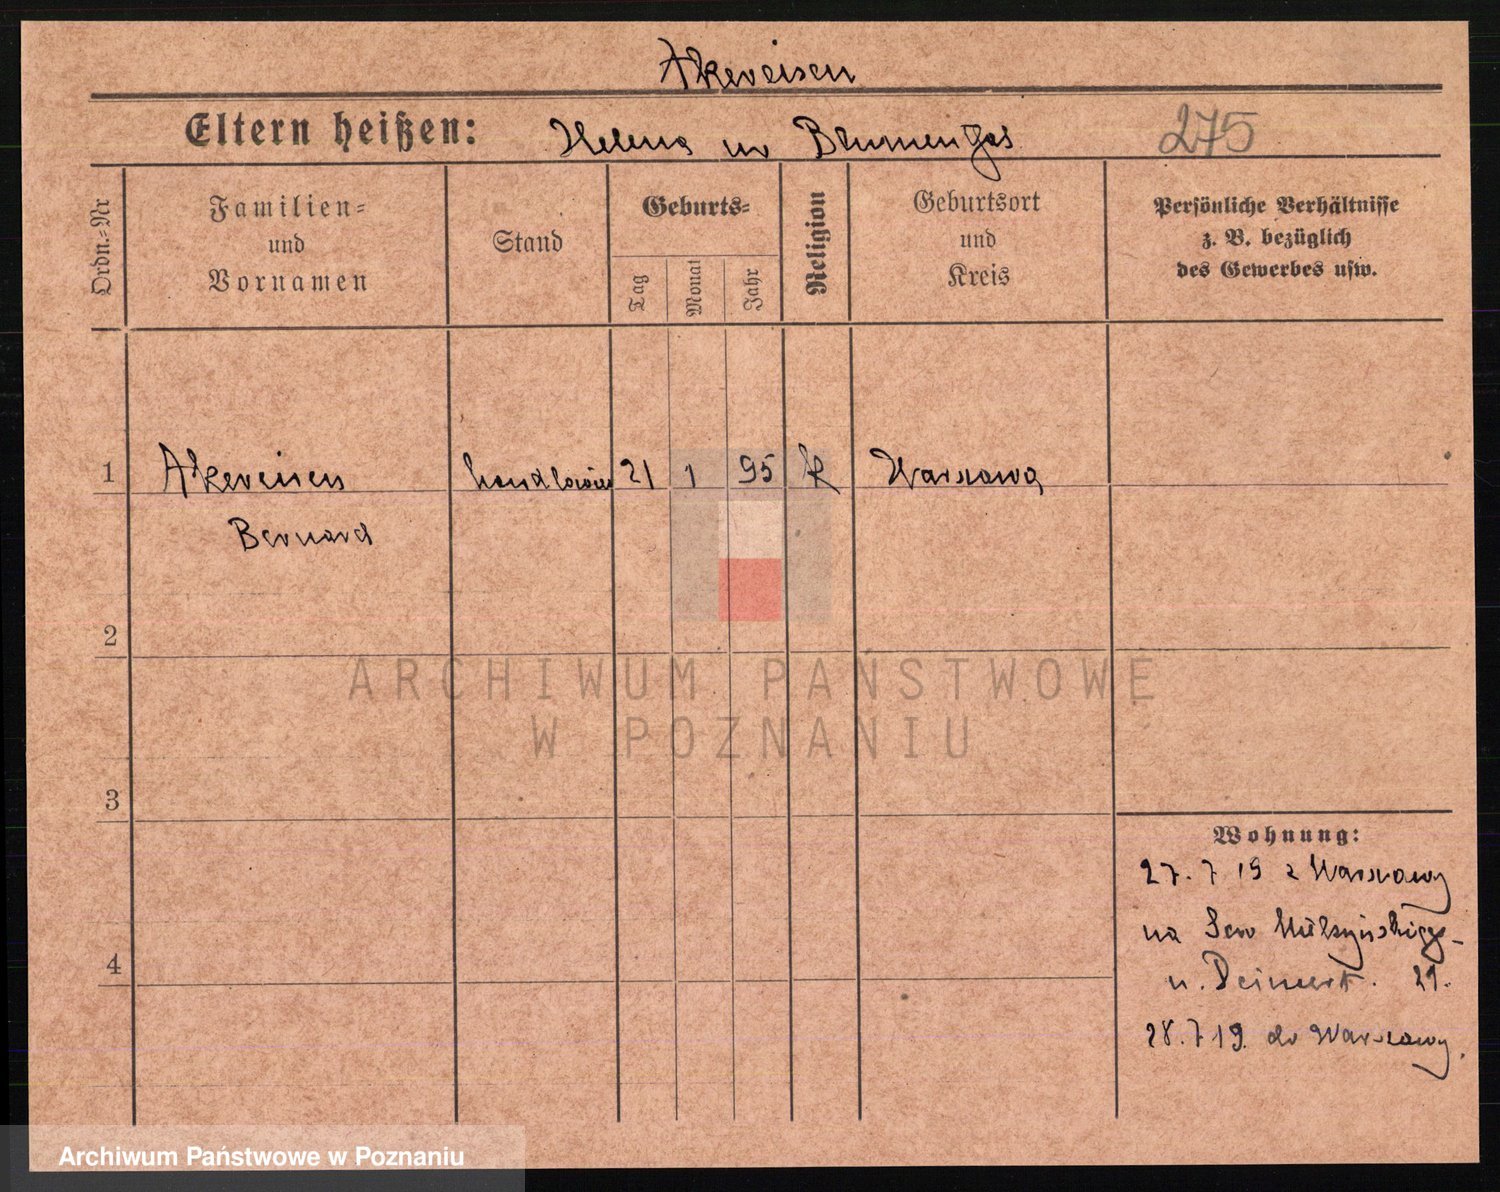 Akereisen
Eltern heißen: Helena ur Blumen 275
Ordn.-Nr
Familien-
und
Vornamen
Stand
Geburts-
Tag
Monat
Jahr
Religion
Geburtsort
und
Kreis
Persönliche Verhältnisse
z. B. bezüglich
des Gewerbes usw.
1 Akereisen handlowiec 21 1 95 k Warszawa
Bernard
2
ARCHIWUM PAŃSTWOWE
W POZNANIU
3
Wohnung:
27.7 19 z Warszawy
na Sew
u. 21.
4
28.7 19. do Warszawy.
Archiwum Państwowe w Poznaniu